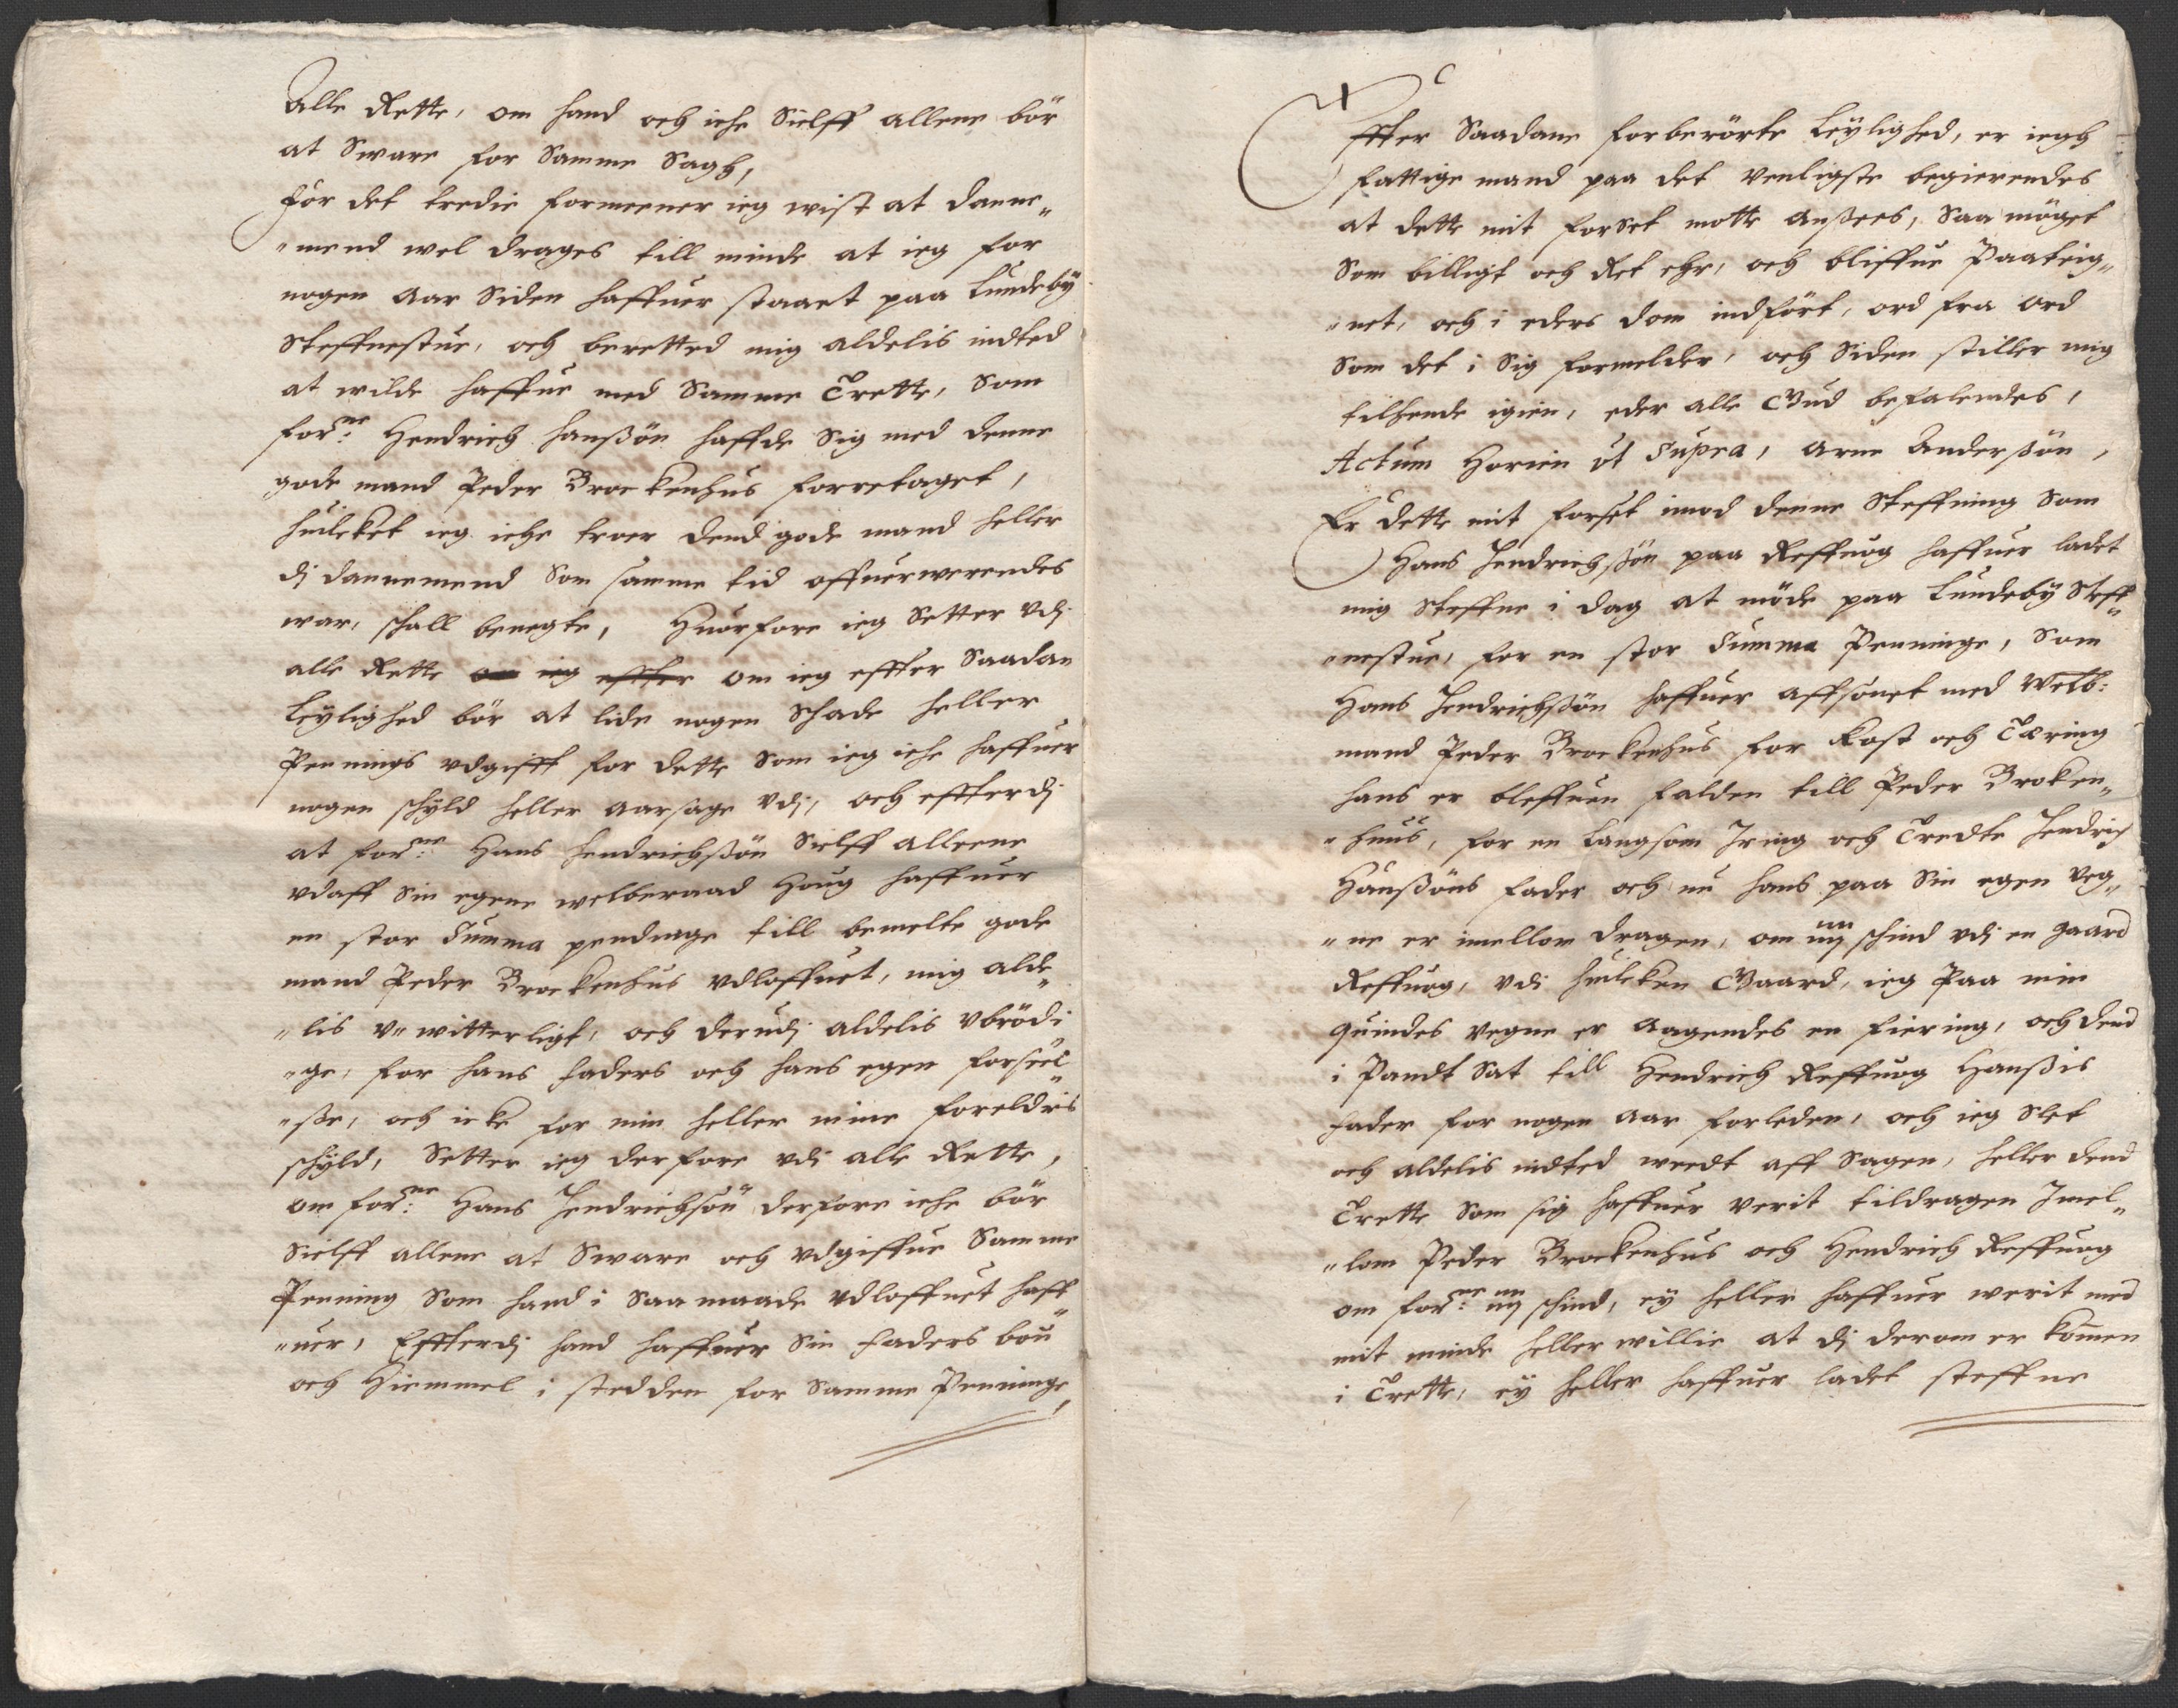 Alle Rette, om hand och iche Sielff allene bör
at Sware for Samme Sagh,
For det tredie formeener ieg wist at danne„
„mend wel drages till minde at ieg for
nogen aar Siden haffuer staaet paa Lundeby
Steffnestue, och beretted mig aldelis indted
at wilde haffue med Samme Trette, Som
for:ne Hendrich Hanßön haffde Sig med denne
gode mand Peder Brockenhus forretaget,
huilcket ieg iche troer dend gode mand heller
dj dannemend Som samme tid offuerwerendes
war, schall benegte, Huorfore ieg Setter vdj
alle Rette om ieg effter om ieg effter Saadan
Leylighed bör at lide nogen Schade heller
Pennings vdgifft for dette Som ieg iche haffuer
nogen schyld heller aarsage vdj, och effterdj
at for:ne Hans Hendrichßön Sielff alleene
vdaff Sin egene welberaad Houg haffuer
en stor Summa pendinge till bemelte gode
mand Peder Brockenhus vdloffuet, mig alde„
„lis v„witterligt, och derudj aldelis vbrödi
„ge, for hans faders och hans egen forseel„
„ße, och icke for min heller mine foreldris
schyld, Setter ieg derfore vdi alle Rette,
om for:ne Hans Hendrichsön derfore iche bör
Sielff allene at Sware och vdgiffue Samme
Penning Som hand i Saa maade vdloffuet haff„
„uer, Effterdj hand haffuer Sin faders bou
och Hiemmel i stedden for Samme Penninge,
Effter Saadane forberörte Leylighed, er iegh
fattige mand paa det venligste begierendes
at dette mit forset motte anßees, Saa möget
Som billigt och Ret ehr, och bliffue Paateig„
„net, och i eders dom indfört, ord fra ord
Som det i Sig formelder, och Siden stiller mig
tilhende igien, eder alle Gud befalendes,
Actum Horien ut Supra, Arne Anderßön,
Er dette mit forset imod denne Steffning Som
Hans Hendrichßön paa Reffuog haffuer ladet
mig Steffne i dag at möde paa Lundeby Steff„
„nestue, for en stor Summa Penninge, Som
Hans Hendrichßön haffuer affsonet med Welb:
mand Peder Brockenhus for Kost och Tæring
hans er bleffuen falden till Peder Brocken„
„huus, for en Langsom Iring och Tredte Hendrich
Hanßöns fader och nu hans paa Sin egen veg„
„ne er imellom dragen, om iiij schind vdj en gaard
Reffuog, vdi huilcken Gaard, ieg Paa min
quindes vegne er aagendes en fiering, och dend
i Pandt Sat till Hendrich Reffuog Hanßis
fader for nogen aar forleden, och ieg Slet
och aldelis indted weedt aff Sagen, heller dend
Trette Som sig haffuer verit tildragen Imel„
„lom Peder Brockenhus och Hendrich Reffuog
om for:ne iiij schind, ey heller haffuer werit med
mit minde heller willie at dj derom er kom̄en
i Trette, ey heller haffuer ladet steffne